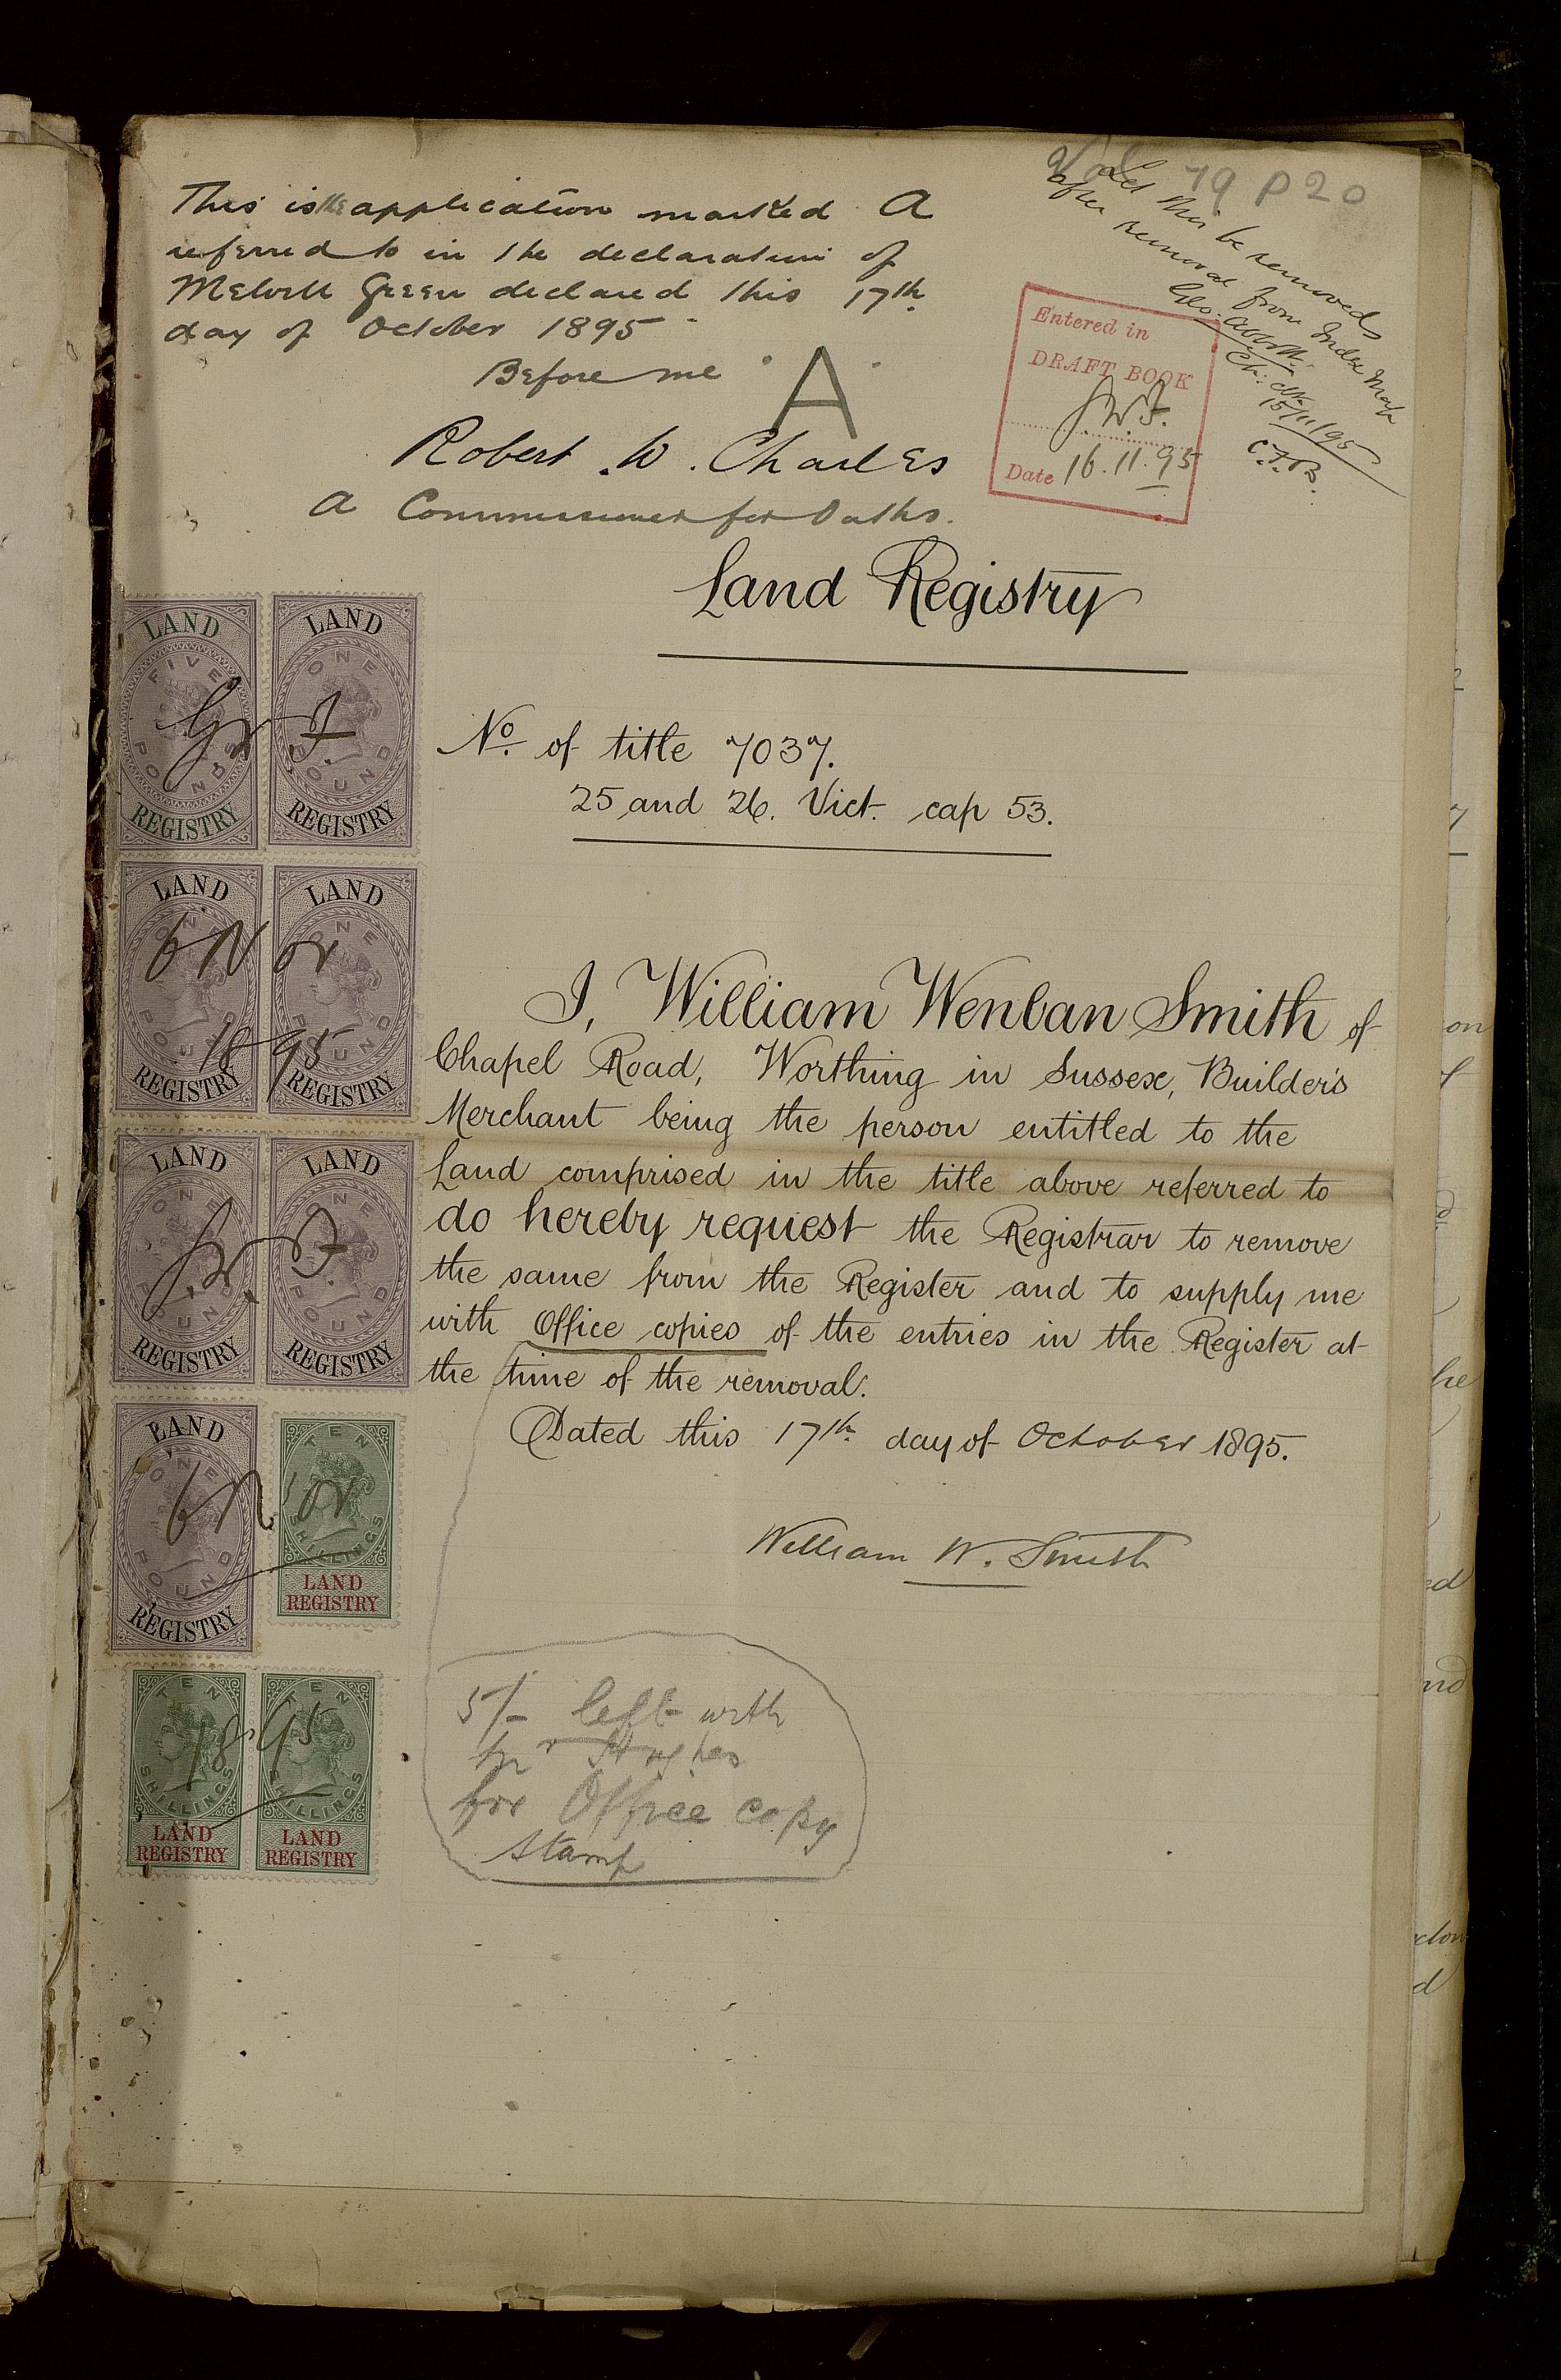 Vol 79 P 20
Let this be removed
after removal from Index Map
Ch: Clk
15/11/95
C.F.B.
This is the application marked A
referred to in the declaration of
Melvill Green declared this 17th
day of October 1895
Before me
A
Robert W. Charles
a Commissioner for Oaths.
Entered in
DRAFT BOOK
Date 16.11.95
Land Registry
No. of title 7037.
25 and 26. Vict. cap 53.
I, William Wenban Smith of
Chapel Road, Worthing in Sussex, Builder's
Merchant being the person entitled to the
Land comprised in the title above referred to
do hereby request the Registrar to remove
the same from the Register and to supply me
with Office copies of the entries in the Register at
the time of the removal.
Dated this 17th day of October 1895.
William W. Smith
5/- left with
Mr Hughes
for Office copy
stamp
LAND
FIVE
POUNDS
REGISTRY
LAND
ONE
POUND
REGISTRY
LAND
ONE
POUND
REGISTRY
LAND
ONE
POUND
REGISTRY
6 Nov
1895
LAND
ONE
POUND
REGISTRY
LAND
ONE
POUND
REGISTRY
LAND
ONE
POUND
REGISTRY
TEN
SHILLINGS
LAND
REGISTRY
6 Nov
TEN
SHILLINGS
LAND
REGISTRY
TEN
SHILLINGS
LAND
REGISTRY
1895